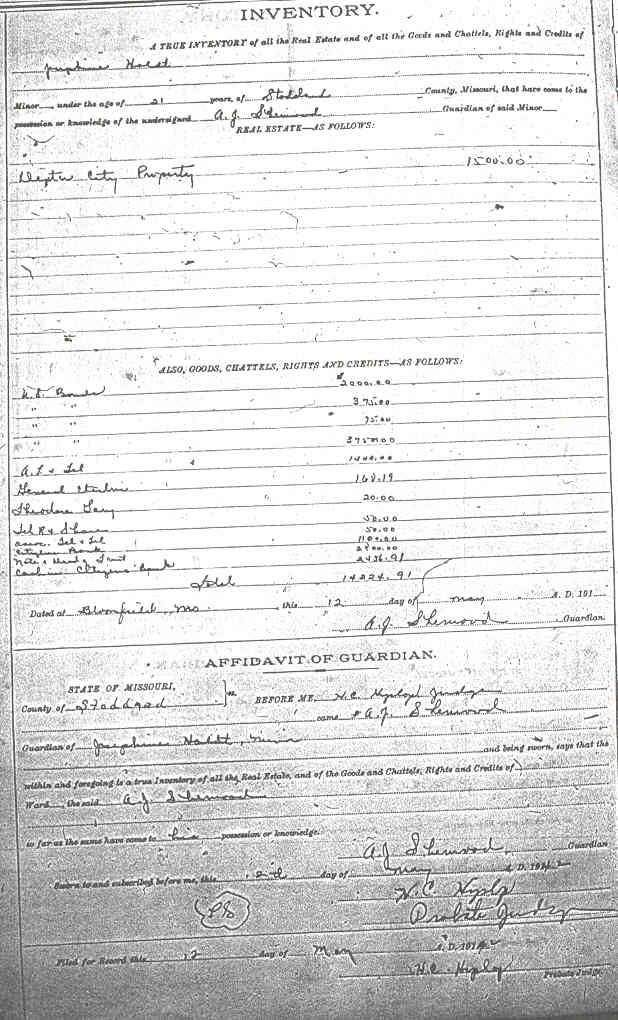 INVENTORY.
A TRUE INVENTORY of all the Real Estate and of all the Goods and Chattels, Rights and Credits of
Josephine
Minor, under the age of 21 years, of Stoddard County, Missouri, that have come to the
possession or knowledge of the undersigned A. J. Sherwood Guardian of said Minor
REAL ESTATE—AS FOLLOWS:
Dexter City Property 1500.00
ALSO, GOODS, CHATTELS, RIGHTS AND CREDITS—AS FOLLOWS:
Bonds $2000.00
" " 375.00
" " 75.00
" " 3750.00
A. T & Tel
General 168.19
Theodore Gary 20.00
Tel & Share 50.00
Assoc. Tel & Tel 50.00
Citizens Bank 1100.00
Note & Deed of Trust
Cash in Citizens Bank 2436.91
Total 14224.91
Dated at Bloomfield, Mo. this 12 day of May A. D. 191
A. J. Sherwood Guardian.
AFFIDAVIT OF GUARDIAN.
STATE OF MISSOURI,
County of Stoddard } ss. BEFORE ME, H. C. Judge
came A. J. Sherwood
Guardian of Josephine , Minor and being sworn, says that the
within and foregoing is a true Inventory of all the Real Estate, and of the Goods and Chattels, Rights and Credits of
Ward, the said A J Sherwood
so far as the same have come to his possession or knowledge.
A J Sherwood, Guardian
Sworn to and subscribed before me, this day of May A. D. 194
H. C.
Probate Judge
Filed for Record this 12 day of May A. D. 194
H. C. Probate Judge.